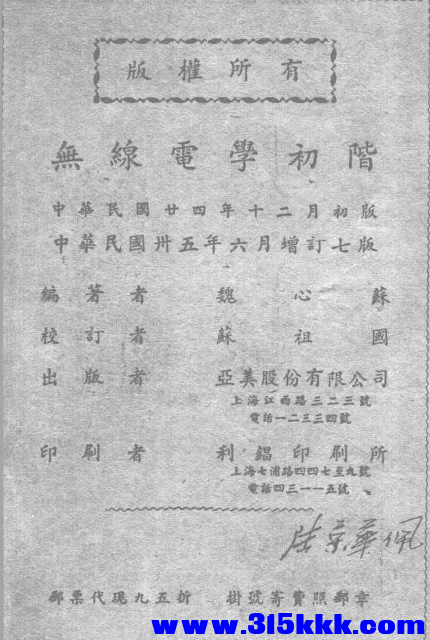 版權所有
無線電學初階
中華民國廿四年十二月初版
中華民國卅五年六月增訂七版
編著者 魏心蘇
校訂者 蘇祖國
出版者 亞美股份有限公司
上海江西路三二三號
電話一二三三四號
印刷者 利錩印刷所
上海七浦路四四七至九號
電話四三一一五號
郵票代現九五折 掛號寄費照郵章
www.315kkk.com